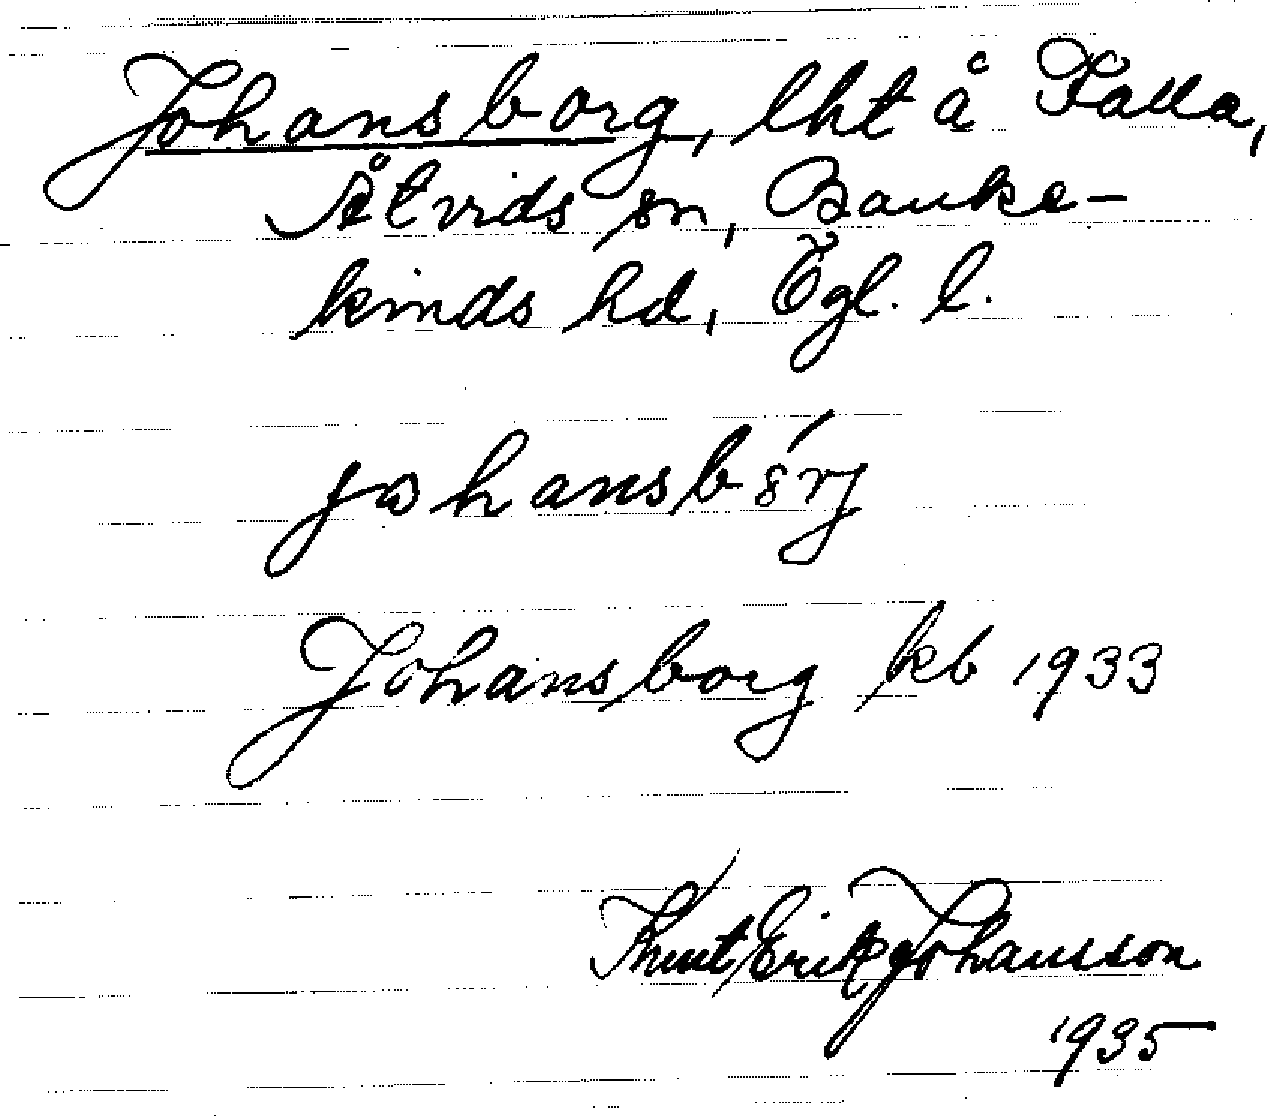 Johansborg, lht å Falla,
Åtvids sn, Banke-
kinds hd, Ögl. l.
johansbórj
Johansborg kb 1933
Knut Erik Johansson
1935